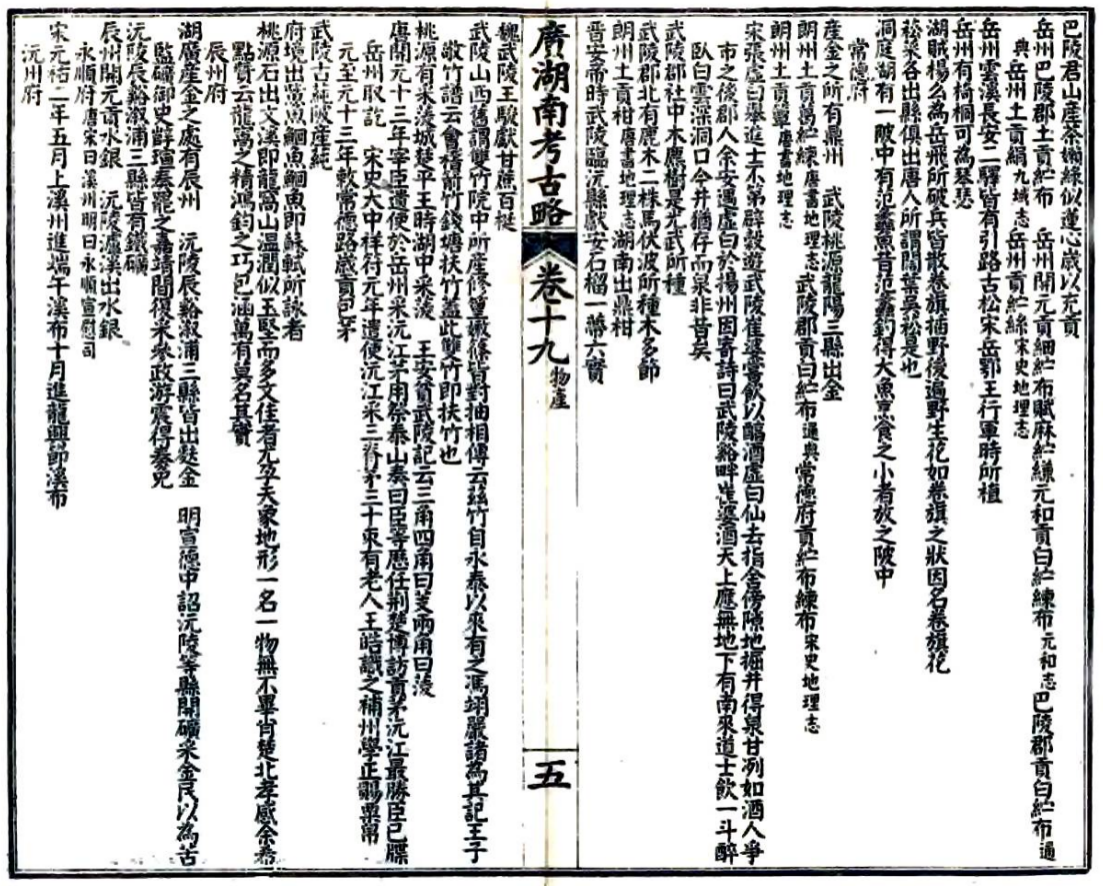 巴陵君山産茶嫩綠似蓮心歲以充貢
岳州巴陵郡土貢紵布　岳州開元貢細紵布賦麻紵縑元和貢白紵練布元和志巴陵郡貢白紵布通
典岳州土貢絹九域志岳州貢紵絲宋史地理志
岳州雲溪長安二驛皆有引路古松宋岳鄂王行軍時所植
岳州有椅桐可為琴瑟
湖賊楊么為岳飛所破兵皆散卷旗插野後遍野生花如卷旗之狀因名卷旗花
菘菜各出縣俱出唐人所謂闊葉吳菘是也
洞庭湖有一陂中有范蠡魚昔范蠡釣得大魚烹食之小者放之陂中
常德府
産金之所有鼎州　武陵桃源龍陽三縣出金
朗州土貢葛紵練唐書地理志武陵郡貢白紵布通典常德府貢紵布練布宋史地理志
朗州土貢簟唐書地理志
宋張虛白舉進士不第辟穀遊武陵崔婆嘗飲以醹酒虛白仙去指舍傍隙地掘井得泉甘冽如酒人爭
市之後郡人余安遇虛白於揚州因寄詩曰武陵谿畔崔婆酒天上應無地下有南來道士飲一斗醉
臥白雲深洞口今井猶存而泉非昔矣
武陵郡社中木應樹是光武所種
武陵郡北有鹿木二株馬伏波所種木多節
朗州土貢柑唐書地理志湖南出鼎柑
晉安帝時武陵臨沅縣獻安石榴一蔕六實
廣湖南考古略　卷十九物産　五
魏武陵王駿獻甘蔗百挺
武陵山西舊謂雙竹院中所産修篁嫩篠皆對抽相傳云兹竹自永泰以來有之馮翊嚴諸為其記王子
敬竹譜云會稽箭竹錢塘扶竹蓋此雙竹即扶竹也
桃源有采淩城楚平王時湖中采菱　王安貧武陵記云三角四角曰芰兩角曰淩
唐開元十三年宰臣遣使於岳州采沅江茅用祭泰山奏曰臣等歷任荆楚博訪貢茅沅江最勝臣已牒
岳州取訖　宋史大中祥符元年遣使沅江采三脊茅三十束有老人王皓識之補州學正賜粟帛
元至元十三年軟常德路歲貢包茅
武陵古蒓陂産蒓
府境出鱟魚鯽魚鯝魚即蘇軾所詠者
桃源石出文溪即龍窩山溫潤似玉堅而多文佳者尤孕天象地形一名一物無不畢肖楚北孝感余忝
點贊云龍窩之精鴻鈞之巧包涵萬有莫名其寶
辰州府
湖廣産金之處有辰州　沅陵辰谿溆浦三縣皆出麩金　明宣德中詔沅陵等縣開礦采金民以為苦
監礦御史薛瑄奏罷之嘉靖間復采叅政游震得奏免
沅陵辰谿溆浦三縣皆有鐵礦
辰州開元貢水銀　沅陵瀘溪出水銀
永順府唐宋曰溪州明曰永順宣慰司
宋元祐二年五月上溪州進端午溪布十月進龍興節溪布
沅州府